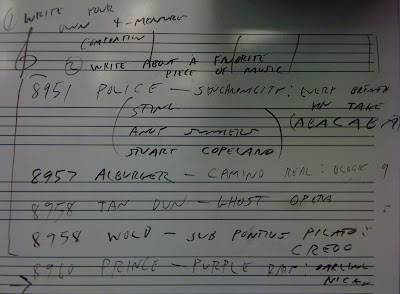 ① WRITE YOUR
OWN 4-MEASURE
COMPOSITION
② WRITE ABOUT A FAVORITE
PIECE OF MUSIC
8951 POLICE - SYNCHRONICITY: EVERY BREATH
YOU TAKE
(STING (ABACAB
ANDY SUMMERS
STUART COPELAND)
8957 ALBURGER - CAMINO REAL: BLOCK 9
8958 TAN DUN - GHOST OPERA
8958 WOLD - SUB PONTIUS PILATO:
CREDO
8960 PRINCE - PURPLE RAIN: DARLING
NICKI